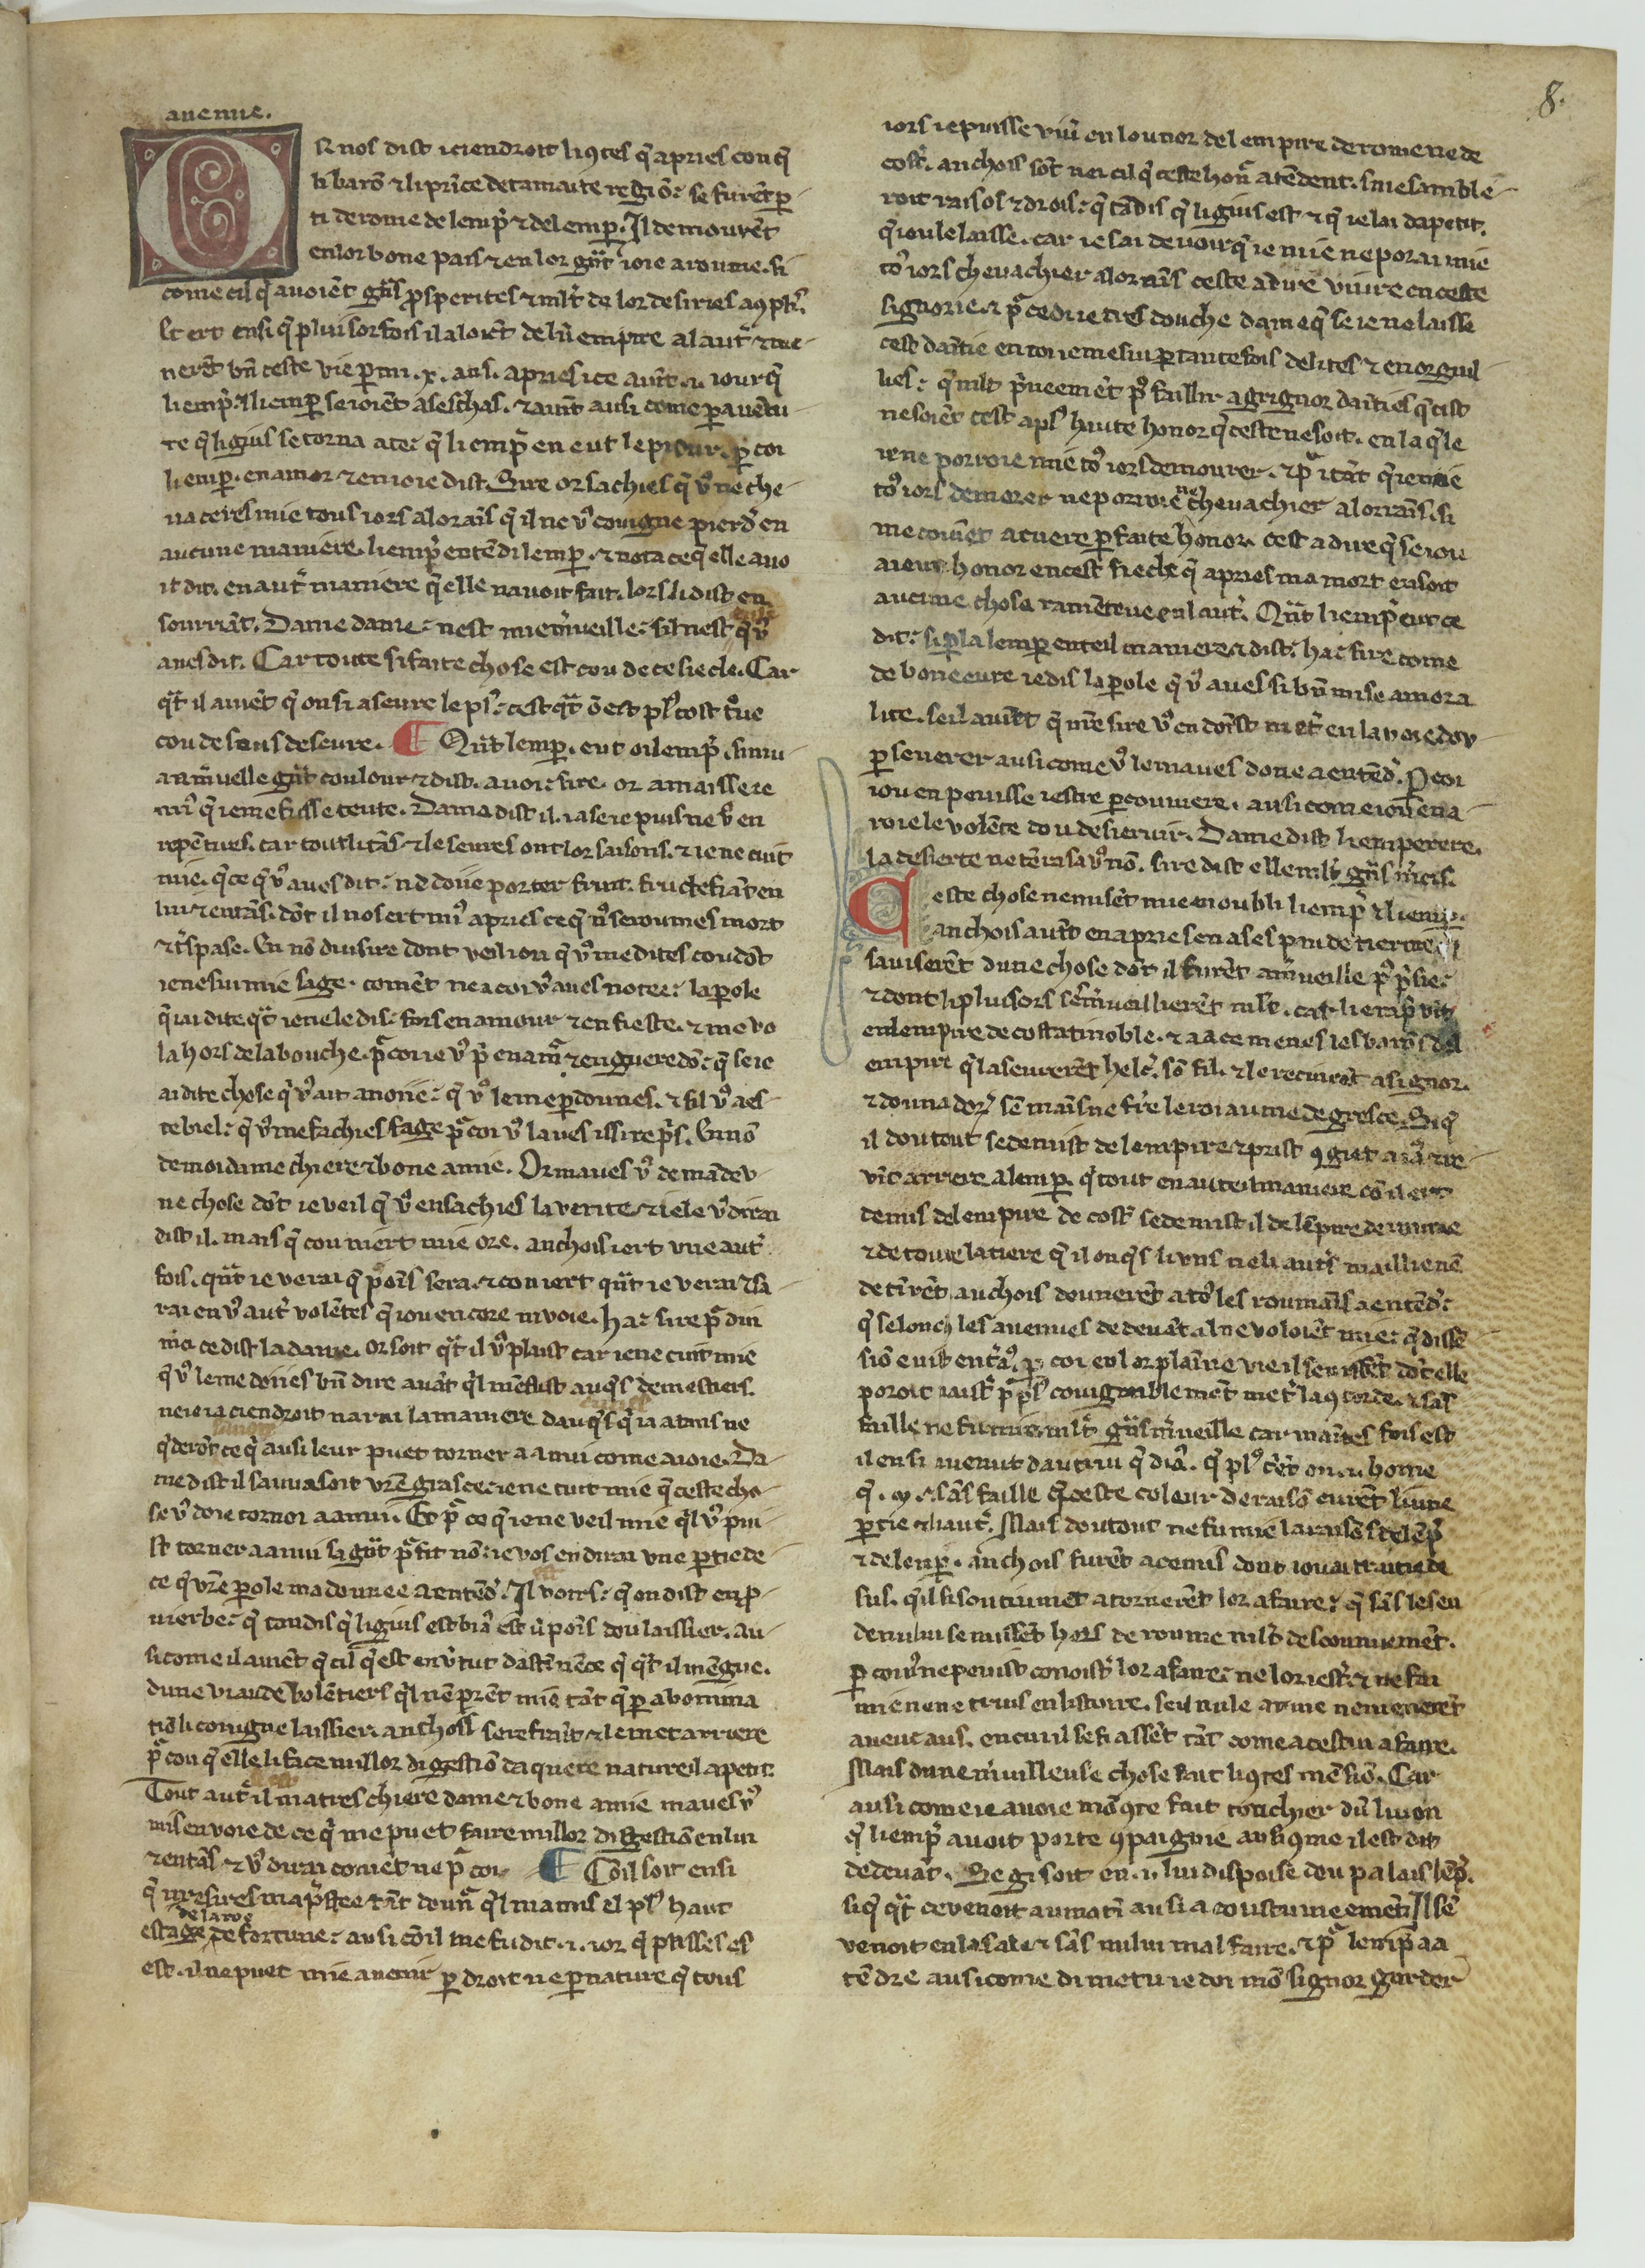 8.
auenue.
Or nos dist ici endroit li 9tes q̃ apries cou q̃
li barõ ⁊ li prı̃ce de tamaite regiõ: se furẽt p̱
ti de rome de lemp̃ ⁊ del emp̱. Il demourẽt
en lor bone pais ⁊ en lor gñt ioie a roume. si
come cil q̃ auoiẽt gñs ꝓsperites ⁊ mlt̃ de lor desiries
⁊ ert ensi q̃ pluisors fois il aloiẽt de lũ empire al aut̃ ⁊ me
nerẽt bñ ceste vie p̱ mi .x. ans. apries ice auĩt .i. iour q̃
li emp̃. ⁊ li emp̱ seioiẽt as eschas. ⁊ auĩt ausi come p̱ auẽtu
re q̃ li gius se torna a te: q̃ li emp̃ en eut le piour. p̱ coi
li emp̱. en amor ⁊ en ioie dist. Sire or sachies q̃ vꝰ ne che
uaceres mie tous iors a lorãs q̃ il ne vꝰ couigne pierdˀ en
aucune maniere. li emp̃ entẽdi lemp̱. ⁊ nota ce q̃ elle auo
it dit. en aut̃ maniere q̃ elle nauoit fait. lors li dist en
sourriãt. Dame dame: nest mie m̃ueille: sil nest q̃ vꝰ
aues dit. Car toute si faite chose est cou de ce siecle. Car
qˢt il auiẽt q̃ on si aseure le plˢ: cest qˢt õ est plˢ tost tˢue
cou desous deseure. ¶ Qˢt lemp̱. eut oi lemp̃. si mu
a m̃uelle gñt coulour ⁊ dist. auoi: sire. or amaisse ie
miˀ q̃ ie me fusse teute. Dame dist il. ia se ie puis ne vꝰ en
repẽtires. car tout li tãs ⁊ le seures ont lor saisons. ⁊ ie ne cuit
mie. q̃ ce q̃ vꝰ aues dit: ne doie porter fruit. fructefiãt en
lui ⁊ en tãs. dõt il nos ert miˀ apries ce q̃ nꝰ seroumes mort
⁊ tˢspase. En nõ diu sire dont veil iou q̃ vꝰ me dites cou dõt
ie ne sui mie sage. comẽt ne a coi vꝰ aues notee: la p̱ole
q̃ iai dite qˢt ie ne le dis: fors en amour ⁊ en fieste. ⁊ me vo
la hors de la bouche. pˢ coi ie vꝰ pˢ en amˢ ⁊ en gueredõ: q̃ se ie
ai dite chose q̃ vꝰ ait anoiie: q̃ vꝰ le me p̱dounes. ⁊ sil vꝰ aes
te biel: q̃ vꝰ me fachies sage pˢ coi vꝰ laues issi repˢs. En nõ
de moi dame chiere ⁊ bone amie. Or maues vꝰ demãde v
ne chose dõt ie veil q̃ vꝰ en sachies la verite ⁊ ie le vꝰ dirai
dist il. mais q̃ cou niert mie ore. anchois iert vne aut̃
fois. qñt ie verai q̃ poĩs sera. ⁊ cou iert qñt ie verai ⁊ sa
rai en vꝰ aut̃ volẽtes q̃ iou encore ni voie. Ha: sire pˢ diu
m̃ci ce dist la dame. or soit qˢt il vꝰ plaist car ie ne cuit mie
q̃ vꝰ le me doiies bñ dire auãt q̃l mẽstuist auq̃s de mestiers.
ne ie ia ciendroit narai la maniere dauq̃s q̃ ia a tans ne
q̃derõt ce q̃ ausi leur puet torner a anui come a ioie. Da
me dist il sauua soit vrẽ grasce: ie ne cuit mie q̃ ceste cho
se vꝰ doie torner a anui. Et pˢ ce q̃ ie ne veil mie q̃l vꝰ pui
st torner a anui si gñt pˢfit nõ: ie vos en dirai vne p̱tie de
ce q̃ vrẽ p̱ole ma dounee a entẽdˀ. Il voirs: q̃ on dist en ꝓ
uierbe: q̃ tandis q̃ li gius est biaˀ est il poĩs dou laissier. au
si come il auiẽt q̃ cil q̃ est en ṽtut dastinẽce q̃ qˢt il mẽgue.
dune viande volẽtiers q̃l nẽ prẽt mie tãt q̃ p̱ abomina
tiõ li couigne laissier. anchois se refraĩt ⁊ le met arriere
pˢ cou q̃ elle li face millor digestiõ da quere natureil apetit.
Tout aut̃ il ma tres chiere dame ⁊ bone amie maues vꝰ
mis en voie de ce q̃ me puet faire millor digestiõ en lui
⁊ en tãs. ⁊ vꝰ dirai comẽt ne pˢ coi. ¶ Cõil soit ensi
q̃ nre sires ma pˢstee tãt dounˢ q̃l ma mis el plˢ haut
estage de la roe de fortune: ausi cõ il me fu dit .i. ior q̃ passes es
est. il ne puet mie auenir p̱ droit ne p̱ nature q̃ tous
iors ie puisse viuˀ en lounor del empire de rome ne de
cost̃. anchois sõt nei cil q̃ ceste honˢ atẽdent. si me samble
roit raisos ⁊ drois: q̃ tãdis q̃ li gius est ⁊ q̃ ie lai dapetit.
q̃ iou le laisse. car ie sai de voir q̃ ie mie ne porai mie
toꝰ iors cheuachier a lor raĩs cest a dire viure en ceste
signorie. ⁊ pˢ ce di ie tres douche dame q̃ se ie ne laisse
cest daĩtie en coi ie me sui p̱ tante fois delites ⁊ en orguil
lies: q̃ mlt p̃ueemẽt pˢ faillir a grignor daĩties q̃ cist
ne soiẽt cest aplˢ haute honor q̃ ceste ne soit. en la q̃le
ie ne porroie mie toꝰ iors demourer. ⁊ pˢ itãt q̃ ie mie
toꝰ iors demorer ne poroie ne cheuachier a lorãs. si
me couiẽt a cuere p̱faite honor. cest a dire q̃ se iou
ai eut honor en cest siecle q̃ apries ma mort en soit
aucune chose ramẽteue en laut̃. Qñt li emp̃ eut ce
dit: si p̱la lemp̱ en teil maniere ⁊ dist: ha: sire come
de bone eure ie dis la p̱ole q̃ vꝰ aues si bñ mise a mora
lite. se il auiẽt q̃ nrẽ sire vꝰ en doĩst metˀ en la voie dou
p̱seuerer ausi come vꝰ le maues done a entẽdˀ. P̱ coi
iou en peuisse iestre p̱couniere. ausi come iou en a
roie le volẽte dou desieruir. Dame dist li emperere.
la desierte ne tẽra sa vꝰ nõ. sire dist elle mlt̃ gñs m̃cis.
Ceste chose ne misẽt mie en oubli li emp̃ ⁊ li emp̱.
anchois auĩt en apries en ases pau de tierme
sauiserẽt dune chose dõt il furẽt a m̃ueille pˢ pˢsie:
⁊ dont li pluisors se m̃ueillierẽt mlt̃. car li emp̃ vĩt
en lempire de costãtinoble. ⁊ a ce menes les barõs del
empire q̃ laseurerẽt helcˀ. sõ fil. ⁊ le reciurẽt a signor.
⁊ douna dorˀ sẽ mains ne frˀe le roiaume de gresce. Si q̃
il dou tout se demist de lempire ⁊ prist 9giet ⁊ re
vĩt arriere a lemp̱. q̃ tout en auteil maniere cõ il ert
demis del empire de cost̃ se demist il de lẽpire de roume
⁊ de toute la tiere q̃ il onq̃s li vns ne li aut̃s maillie nẽ
detĩrẽt. anchois dounerẽt a toꝰ les roumaĩs a entẽdˀ:
q̃ selonc les auenues de deuãt il ne voloiẽt mie: q̃ dissẽ
siõ euist entˀaꝰ. p̱ coi en lor plaĩne vie il se misẽt dõt elle
poroit naistˀ p̱ plˢ couignablemẽt metˀ la 9corde. ⁊ sãs
faille ne fu mie mlt̃ gñs m̃ueille car maĩtes fois est
il ensi auenut dautrui q̃ diaꝰ. q̃ plˢ cˀiẽt on .i. home
q̃ .ij. ⁊ sãs faille q̃ ceste coleur de raisõ eurẽt li une
p̱tie ⁊ li autˀ. Mais dou tout ne fu mie la raisõs tel ẽp̃
⁊ de lenp̱. anchois furẽt acemis dont iou ai traitie de
sus. q̃ il si soutiumẽt atornerẽt lor afaire: q̃ sãs le seu
de nului se misẽt hors de roume mlt̃ desconuiemẽt.
p̱ coi nꝰ ne peuist conoistˀ lor afaire: ne lor iestˀe. ⁊ ne fai
mie ne ne truis en listoire. se il nule arme ne menerẽt
auenc aus. en cui il se fiassẽt tãt come a cestui afaire.
Mais dune m̃uilleuse chose fait li 9tes mẽsiõ. Car
ausi come ie auoie mõ 9te fait touchier dũ liuon
q̃ li emp̃ auoit porte 9paignie ausi 9me il est dit
de deuãt. Se gisoit en .i. liu dispoise dou palais lẽp̃.
si q̃ qˢt ce venoit au matĩ ausi acoustumeemẽt. Il sẽ
venoit en la sale ⁊ sãs nului mal faire. ⁊ pˢ lemp̃ aa
tẽdre ausi come di metu ie doi mõ signor garder